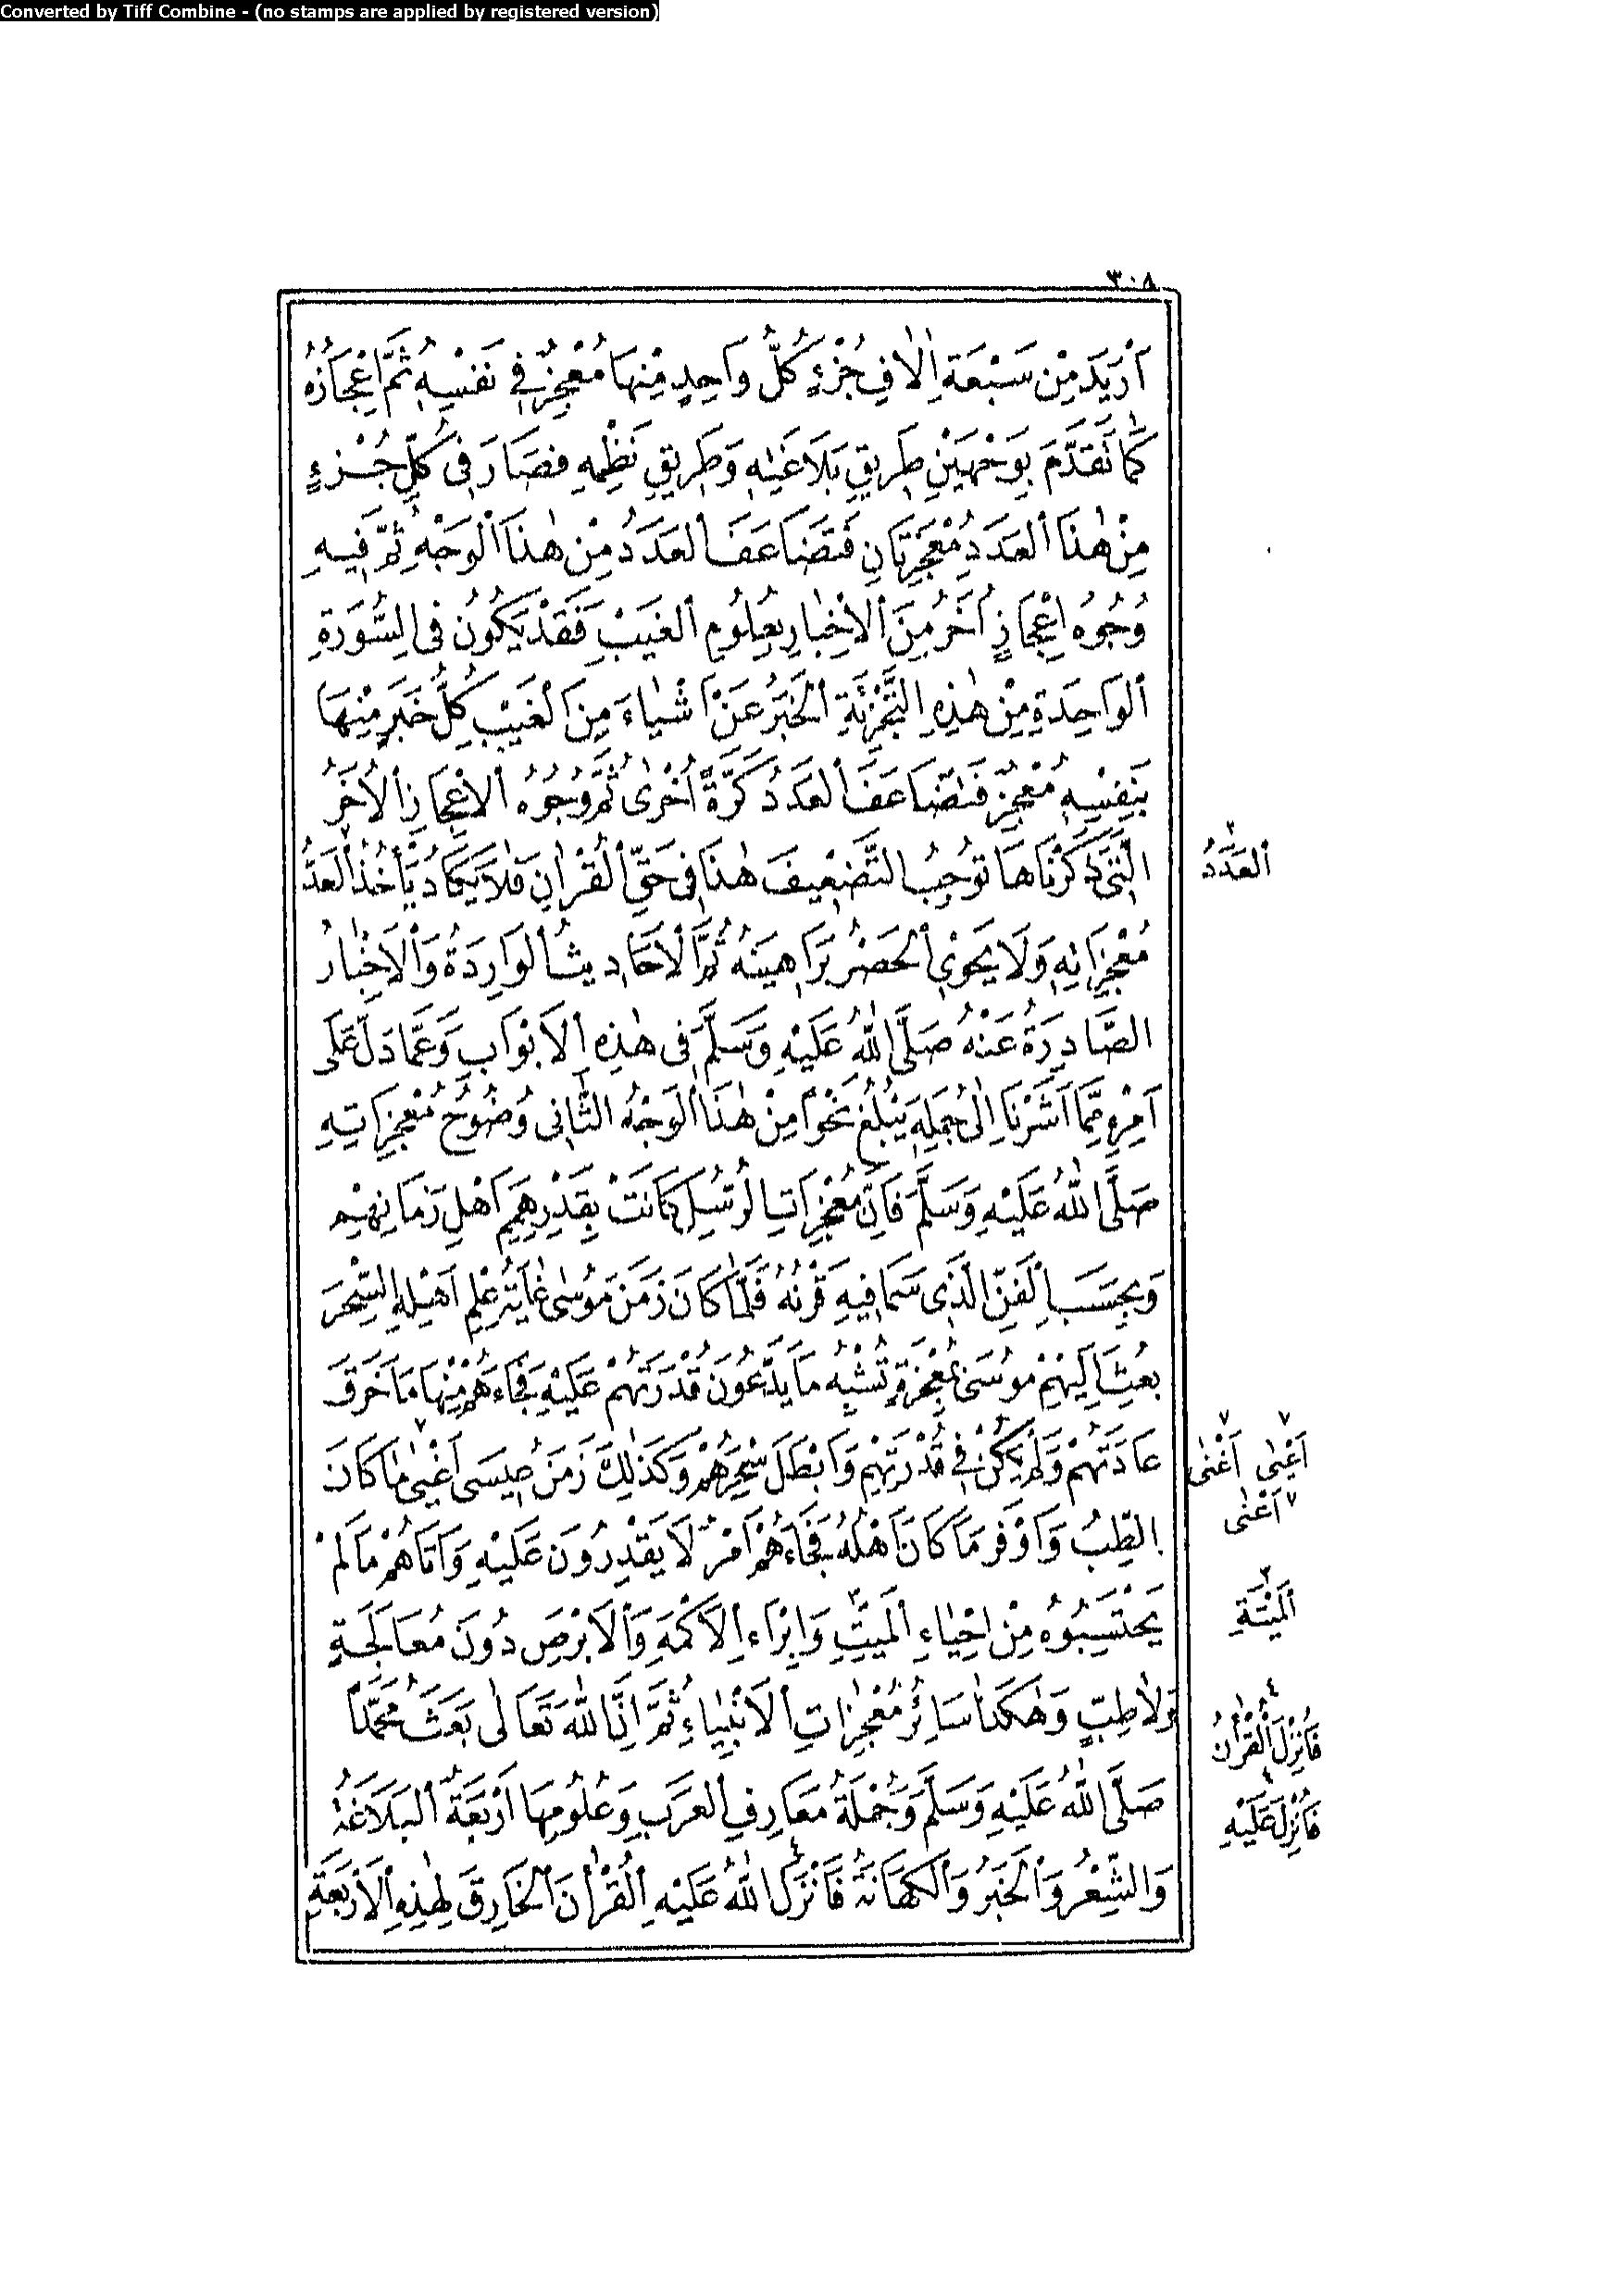 Converted by Tiff Combine - (no stamps are applied by registered version)
٣٠٨
أَزْيَدَ مِنْ سَبْعَةِ اٰلَافِ جُزْءٍ كُلُّ وَاحِدٍ مِنْهَا مُعْجِزٌ فِي نَفْسِهِ ثُمَّ اِعْجَازُهُ
كَمَا تَقَدَّمَ بِوَجْهَيْنِ طَرِيقِ بَلَاغَتِهِ وَطَرِيقِ نَظْمِهِ فَصَارَ فِي كُلِّ جُزْءٍ
مِنْ هٰذَا الْعَدَدِ مُعْجِزَتَانِ فَتَضَاعَفَ الْعَدَدُ مِنْ هٰذَا الْوَجْهِ ثُمَّ فِيهِ
وُجُوهُ اِعْجَازٍ اُخَرُ مِنَ الْاِخْبَارِ بِعُلُومِ الْغَيْبِ فَقَدْ يَكُونُ فِي السُّورَةِ
الْوَاحِدَةِ مِنْ هٰذِهِ التَّجْزِئَةِ الْخَبَرُ عَنْ اَشْيَاءَ مِنَ الْغَيْبِ كُلُّ خَبَرٍ مِنْهَا
بِنَفْسِهِ مُعْجِزٌ فَتَضَاعَفَ الْعَدَدُ كَرَّةً اُخْرٰى ثُمَّ وُجُوهُ الْاِعْجَازِ الْاُخَرُ
الَّتِي ذَكَرْنَاهَا تُوجِبُ التَّضْعِيفَ هٰذَا فِي حَقِّ الْقُرْاٰنِ فَلَا يَكَادُ يَأْخُذُ الْعَدُّ
الْعَدَدُ
مُعْجِزَاتِهِ وَلَا يَحْوِي الْحَصْرُ بَرَاهِينَهُ ثُمَّ الْاَحَادِيثُ الْوَارِدَةُ وَالْاَخْبَارُ
الصَّادِرَةُ عَنْهُ صَلَّى اللّٰهُ عَلَيْهِ وَسَلَّمَ فِي هٰذِهِ الْاَبْوَابِ وَعَمَّا دَلَّ عَلَى
اَمْرِهِ مِمَّا اَشَرْنَا اِلٰى جُمَلِهِ يَبْلُغُ نَحْوًا مِنْ هٰذَا الْوَجْهُ الثَّانِي وُضُوحُ مُعْجِزَاتِهِ
صَلَّى اللّٰهُ عَلَيْهِ وَسَلَّمَ فَاِنَّ مُعْجِزَاتِ الرُّسُلِ كَانَتْ بِقَدْرِ هِمَمِ اَهْلِ زَمَانِهِمْ
وَبِحَسَبِ الْفَنِّ الَّذِي سَمَا فِيهِ قَرْنُهُ فَلَمَّا كَانَ زَمَنَ مُوسٰى غَايَةُ عِلْمِ اَهْلِهِ السِّحْرَ
بُعِثَ اِلَيْهِمْ مُوسٰى بِمُعْجِزَةٍ تُشْبِهُ مَا يَدَّعُونَ قُدْرَتَهُمْ عَلَيْهِ فَجَاءَهُمْ مِنْهَا مَا خَرَقَ
عَادَتَهُمْ وَلَمْ يَكُنْ فِي قُدْرَتِهِمْ وَاَبْطَلَ سِحْرَهُمْ وَكَذٰلِكَ زَمَنَ عِيسَى اَغْيٰى مَا كَانَ
٧ اَعْيٰى ٧ اَغْنٰى
٧ اَعْنٰى
الطِّبُ وَاَوْفَرَ مَا كَانَ اَهْلُهُ فَجَاءَهُمْ اَمْرٌ لَا يَقْدِرُونَ عَلَيْهِ وَاَتَاهُمْ مَا لَمْ
يَحْتَسِبُوهُ مِنْ اِحْيَاءِ الْمَيِّتِ وَاِبْرَاءِ الْاَكْمَهِ وَالْاَبْرَصِ دُونَ مُعَالَجَةٍ
٢
الْمَيْتَةِ
وَلَا طِبٍّ وَهٰكَذَا سَائِرُ مُعْجِزَاتِ الْاَنْبِيَاءِ ثُمَّ اِنَّ اللّٰهَ تَعَالٰى بَعَثَ مُحَمَّدًا
٤
فَاُنْزِلَ الْقُرْاٰنُ
صَلَّى اللّٰهُ عَلَيْهِ وَسَلَّمَ وَجُمْلَةُ مَعَارِفِ الْعَرَبِ وَعُلُومِهَا اَرْبَعَةٌ الْبَلَاغَةُ
٤
فَاُنْزِلَ عَلَيْهِ
وَالشِّعْرُ وَالْخَبَرُ وَالْكَهَانَةُ فَاَنْزَلَ اللّٰهُ عَلَيْهِ الْقُرْاٰنَ الْخَارِقَ لِهٰذِهِ الْاَرْبَعَةِ